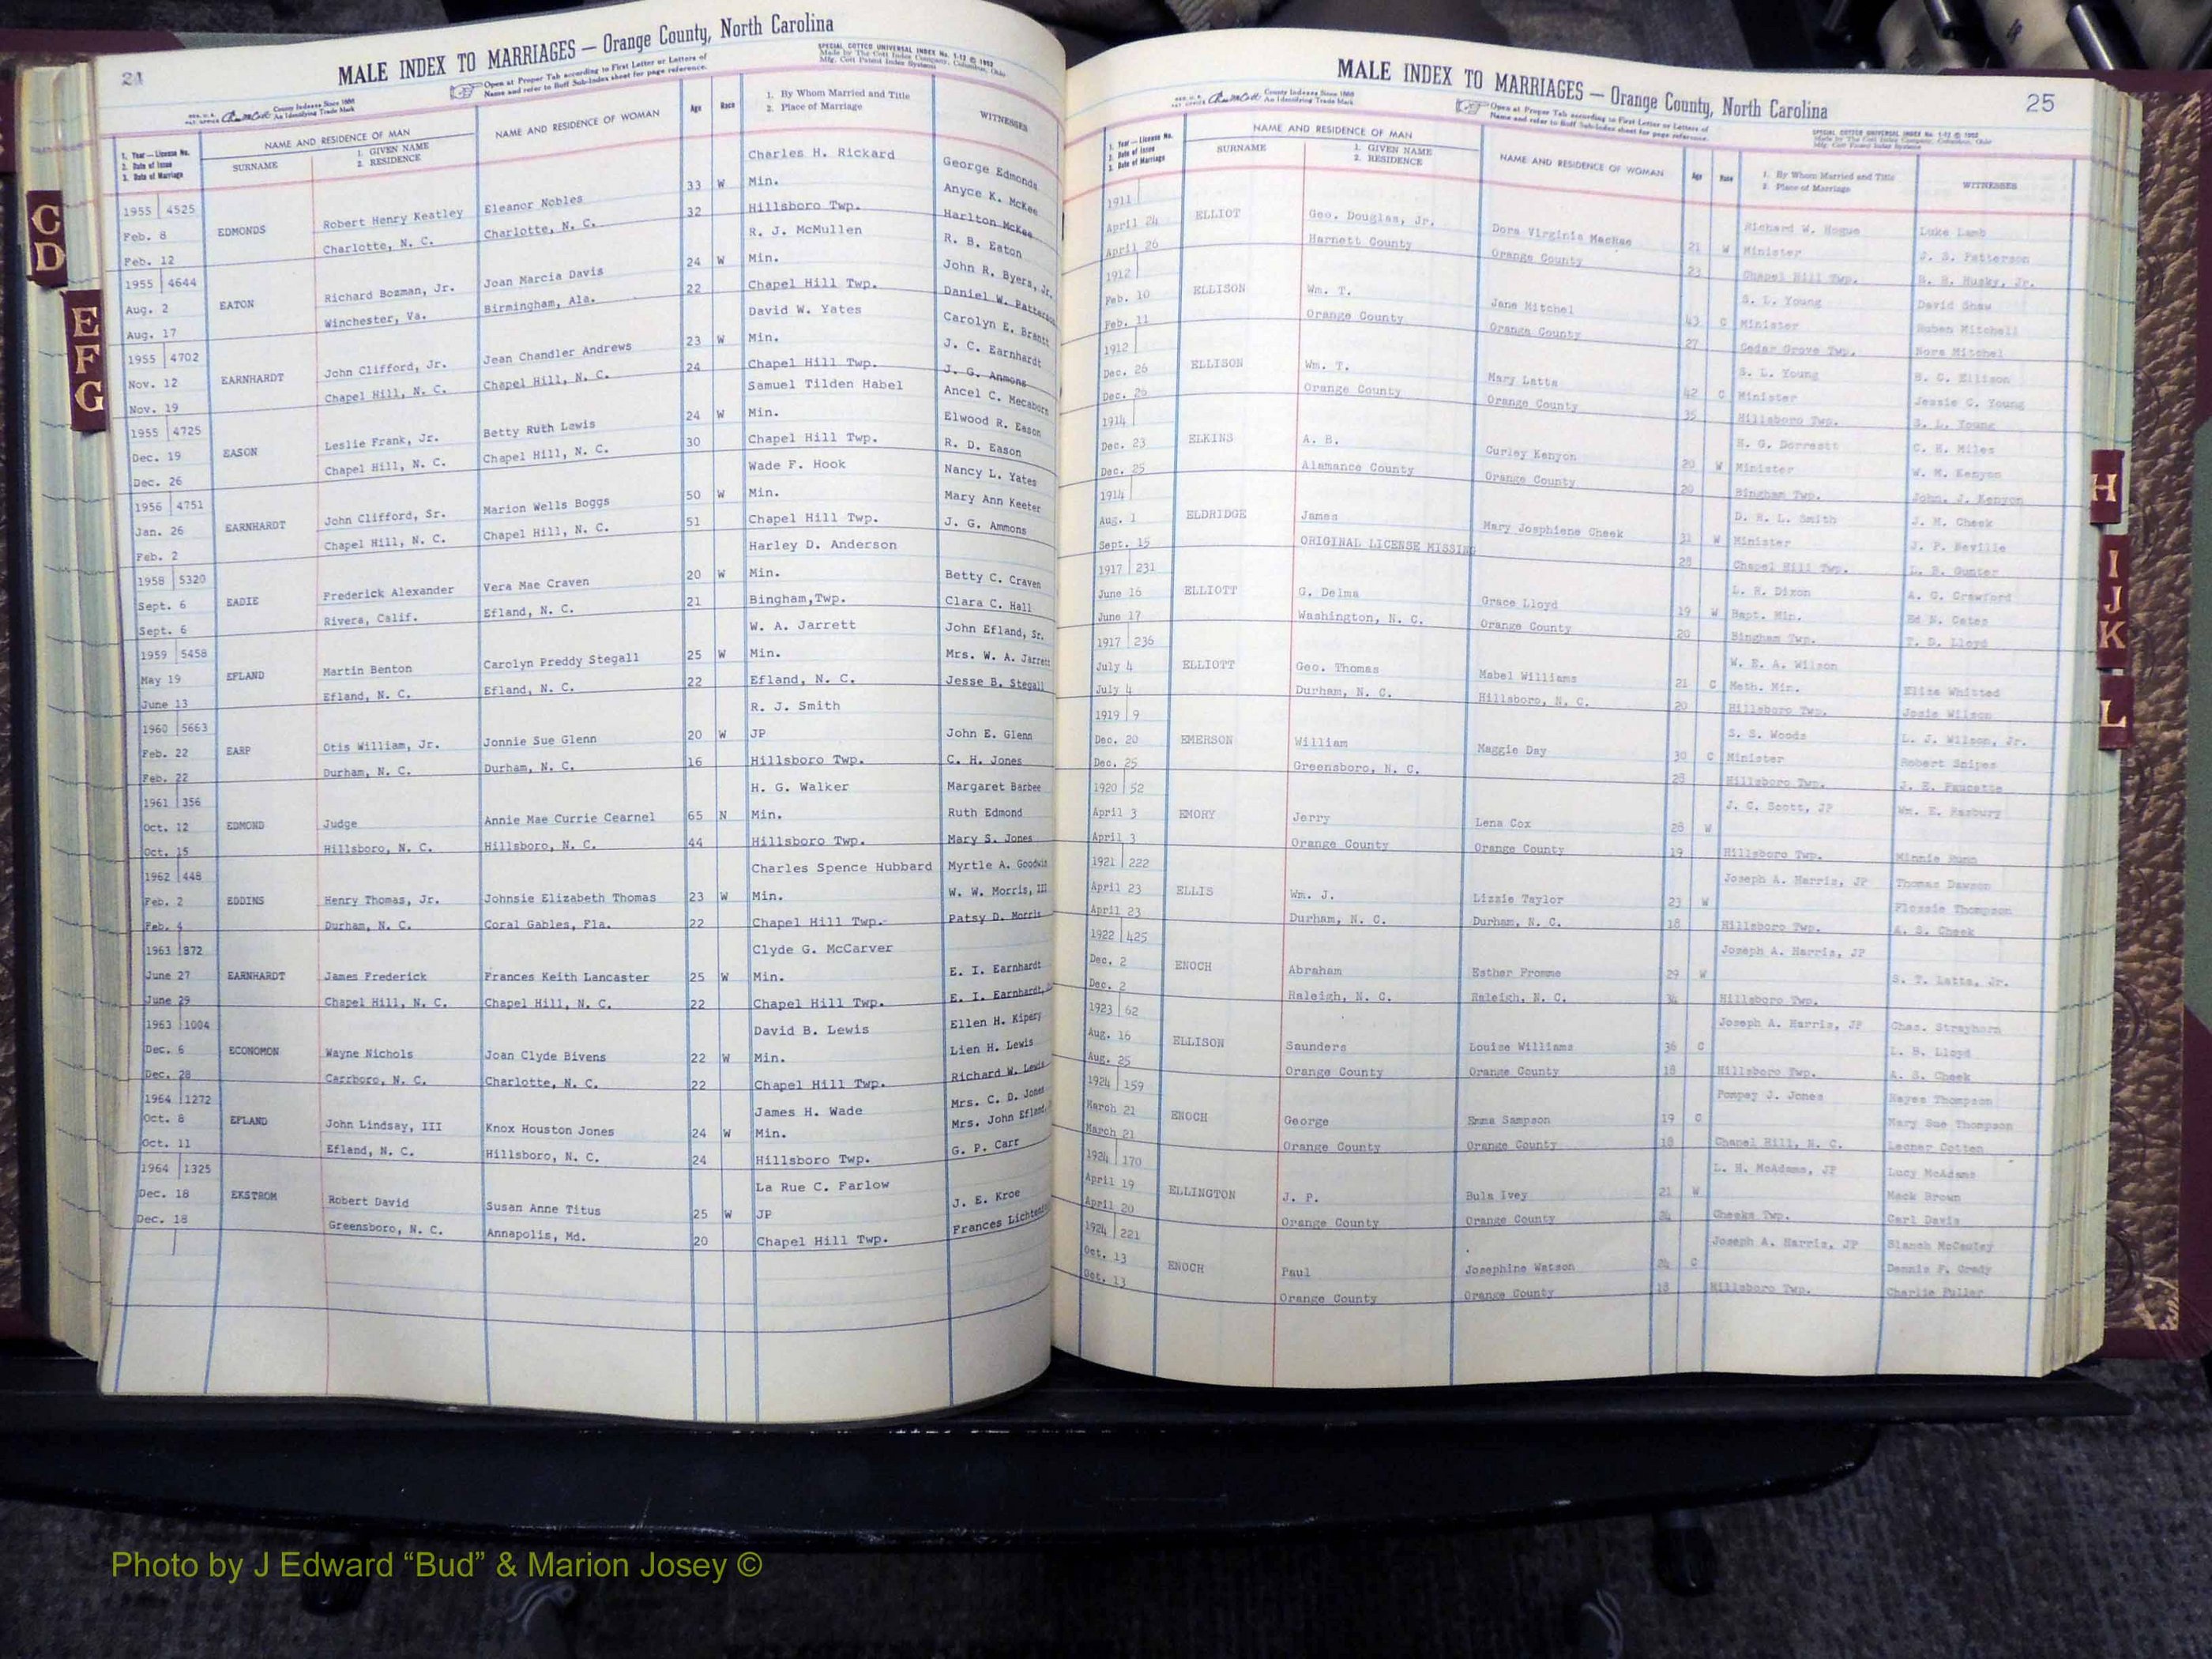 24
MALE INDEX TO MARRIAGES — Orange County, North Carolina
Open at Proper Tab according to First Letter or Letters of
Name and refer to Buff Sub-Index sheet for page reference.
SPECIAL COTTCO UNIVERSAL INDEX No. 1-12 © 1952
Made by The Cott Index Company, Columbus, Ohio
Mfg. Cott Patent Index Systems
County Indexes Since 1888
An Identifying Trade Mark
1. Year—License No.
2. Date of Issue
3. Date of Marriage
NAME AND RESIDENCE OF MAN
SURNAME
1. GIVEN NAME
2. RESIDENCE
NAME AND RESIDENCE OF WOMAN
Age
Race
1. By Whom Married and Title
2. Place of Marriage
WITNESSES
1955 4525 Charles H. Rickard George Edmonds
Feb. 8 EDMONDS Robert Henry Keatley Eleanor Nobles 33 W Min. Anyce K. McKee
Feb. 12 Charlotte, N. C. Charlotte, N. C. 32 Hillsboro Twp. Harlton McKee
1955 4644 R. J. McMullen R. B. Eaton
Aug. 2 EATON Richard Bozman, Jr. Joan Marcia Davis 24 W Min. John R. Byers, Jr.
Aug. 17 Winchester, Va. Birmingham, Ala. 22 Chapel Hill Twp. Daniel W. Patterson
1955 4702 David W. Yates Carolyn E. Brantt
Nov. 12 EARNHARDT John Clifford, Jr. Jean Chandler Andrews 23 W Min. J. C. Earnhardt
Nov. 19 Chapel Hill, N. C. Chapel Hill, N. C. 24 Chapel Hill Twp. J. G. Anmons
1955 4725 Samuel Tilden Habel Ancel C. Mecaborn
Dec. 19 EASON Leslie Frank, Jr. Betty Ruth Lewis 24 W Min. Elwood R. Eason
Dec. 26 Chapel Hill, N. C. Chapel Hill, N. C. 30 Chapel Hill Twp. R. D. Eason
1956 4751 Wade F. Hook Nancy L. Yates
Jan. 26 EARNHARDT John Clifford, Sr. Marion Wells Boggs 50 W Min. Mary Ann Keeter
Feb. 2 Chapel Hill, N. C. Chapel Hill, N. C. 51 Chapel Hill Twp. J. G. Ammons
1958 5320 Harley D. Anderson
Sept. 6 EADIE Frederick Alexander Vera Mae Craven 20 W Min. Betty C. Craven
Sept. 6 Rivera, Calif. Efland, N. C. 21 Bingham,Twp. Clara C. Hall
1959 5458 W. A. Jarrett John Efland, Sr.
May 19 EFLAND Martin Benton Carolyn Preddy Stegall 25 W Min. Mrs. W. A. Jarrett
June 13 Efland, N. C. Efland, N. C. 22 Efland, N. C. Jesse B. Stegall
1960 5663 R. J. Smith
Feb. 22 EARP Otis William, Jr. Jonnie Sue Glenn 20 W JP John E. Glenn
Feb. 22 Durham, N. C. Durham, N. C. 16 Hillsboro Twp. C. H. Jones
1961 356 H. G. Walker Margaret Barbee
Oct. 12 EDMOND Judge Annie Mae Currie Cearnel 65 N Min. Ruth Edmond
Oct. 15 Hillsboro, N. C. Hillsboro, N. C. 44 Hillsboro Twp. Mary S. Jones
1962 448 Charles Spence Hubbard Myrtle A. Goodwin
Feb. 2 EDDINS Henry Thomas, Jr. Johnsie Elizabeth Thomas 23 W Min. W. W. Morris, III
Feb. 4 Durham, N. C. Coral Gables, Fla. 22 Chapel Hill Twp. Patsy D. Morris
1963 872 Clyde G. McCarver
June 27 EARNHARDT James Frederick Frances Keith Lancaster 25 W Min. E. I. Earnhardt
June 29 Chapel Hill, N. C. Chapel Hill, N. C. 22 Chapel Hill Twp. E. I. Earnhardt,
1963 1004 David B. Lewis Ellen H. Kipery
Dec. 6 ECONOMON Wayne Nichols Joan Clyde Bivens 22 W Min. Lien H. Lewis
Dec. 28 Carrboro, N. C. Charlotte, N. C. 22 Chapel Hill Twp. Richard W. Lewis
1964 1272 James H. Wade Mrs. C. D. Jones
Oct. 8 EFLAND John Lindsay, III Knox Houston Jones 24 W Min. Mrs. John Efland,
Oct. 11 Efland, N. C. Hillsboro, N. C. 24 Hillsboro Twp. G. P. Carr
1964 1325 La Rue C. Farlow
Dec. 18 EKSTROM Robert David Susan Anne Titus 25 W JP J. E. Kroe
Dec. 18 Greensboro, N. C. Annapolis, Md. 20 Chapel Hill Twp. Frances
25
MALE INDEX TO MARRIAGES — Orange County, North Carolina
County Indexes Since 1888
An Identifying Trade Mark
Open at Proper Tab according to First Letter or Letters of
Name and refer to Buff Sub-Index sheet for page reference.
SPECIAL COTTCO UNIVERSAL INDEX No. 1-12 © 1952
Made by The Cott Index Company, Columbus, Ohio
Mfg. Cott Patent Index Systems
1. Year—License No.
2. Date of Issue
3. Date of Marriage
NAME AND RESIDENCE OF MAN
SURNAME
1. GIVEN NAME
2. RESIDENCE
NAME AND RESIDENCE OF WOMAN
Age
Race
1. By Whom Married and Title
2. Place of Marriage
WITNESSES
1911 Richard W. Hogue Luke Lamb
April 24 ELLIOT Geo. Douglas, Jr. Dora Virginia MacRae 21 W Minister J. S. Patterson
April 26 Harnett County Orange County 23 Chapel Hill Twp. B. H. Husky, Jr.
1912 S. L. Young David Shaw
Feb. 10 ELLISON Wm. T. Jane Mitchel 43 C Minister Ruben Mitchell
Feb. 11 Orange County Orange County 27 Cedar Grove Twp. Nora Mitchel
1912 S. L. Young B. C. Ellison
Dec. 26 ELLISON Wm. T. Mary Latta 42 C Minister Jessie C. Young
Dec. 26 Orange County Orange County 35 Hillsboro Twp. S. L. Young
1914 H. G. Dorrestt C. H. Miles
Dec. 23 ELKINS A. B. Curley Kenyon 20 W Minister W. M. Kenyon
Dec. 25 Alamance County Orange County 20 Bingham Twp. John. J. Kenyon
1914 D. H. L. Smith J. M. Cheek
Aug. 1 ELDRIDGE James Mary Josphiene Cheek 31 W Minister J. P. Neville
Sept. 15 ORIGINAL LICENSE MISSING 28 Chapel Hill Twp. L. B. Gunter
1917 231 L. R. Dixon A. G. Crawford
June 16 ELLIOTT G. Delma Grace Lloyd 19 W Bapt. Min. Ed N. Cates
June 17 Washington, N. C. Orange County 20 Bingham Twp. T. D. Lloyd
1917 236 W. E. A. Wilson
July 4 ELLIOTT Geo. Thomas Mabel Williams 21 C Meth. Min. Eliza Whitted
July 4 Durham, N. C. Hillsboro, N. C. 20 Hillsboro Twp. Josie Wilson
1919 9 S. S. Woods L. J. Wilson, Jr.
Dec. 20 EMERSON William Maggie Day 30 C Minister Robert Snipes
Dec. 25 Greensboro, N. C. 28 Hillsboro Twp. J. E. Faucette
1920 52 J. C. Scott, JP Wm. E. Rasbury
April 3 EMORY Jerry Lena Cox 28 W
April 3 Orange County Orange County 19 Hillsboro Twp. Minnie Bunn
1921 222 Joseph A. Harris, JP Thomas Dawson
April 23 ELLIS Wm. J. Lizzie Taylor 23 W Flossie Thompson
April 23 Durham, N. C. Durham, N. C. 18 Hillsboro Twp. A. S. Cheek
1922 425 Joseph A. Harris, JP
Dec. 2 ENOCH Abraham Esther Fromme 29 W S. T. Latta, Jr.
Dec. 2 Raleigh, N. C. Raleigh, N. C. 34 Hillsboro Twp.
1923 62 Joseph A. Harris, JP Chas. Strayhorn
Aug. 16 ELLISON Saunders Louise Williams 36 C L. B. Lloyd
Aug. 25 Orange County Orange County 18 Hillsboro Twp. A. S. Cheek
1924 159 Pompey J. Jones Hayes Thompson
March 21 ENOCH George Emma Sampson 19 C Mary Sue Thompson
March 21 Orange County Orange County 18 Chapel Hill, N. C. Leoner Cotten
1924 170 L. H. McAdams, JP Lucy McAdams
April 19 ELLINGTON J. P. Bula Ivey 21 W Mack Brown
April 20 Orange County Orange County 24 Cheeks Twp. Carl Davis
1924 221 Joseph A. Harris, JP Blanch McCauley
Oct. 13 ENOCH Paul Josephine Watson 24 C Dennis F. Grady
Oct. 13 Orange County Orange County 18 Hillsboro Twp. Charlie Fuller
C
D
E
F
G
H
I
J
K
L
Photo by J Edward “Bud” & Marion Josey ©